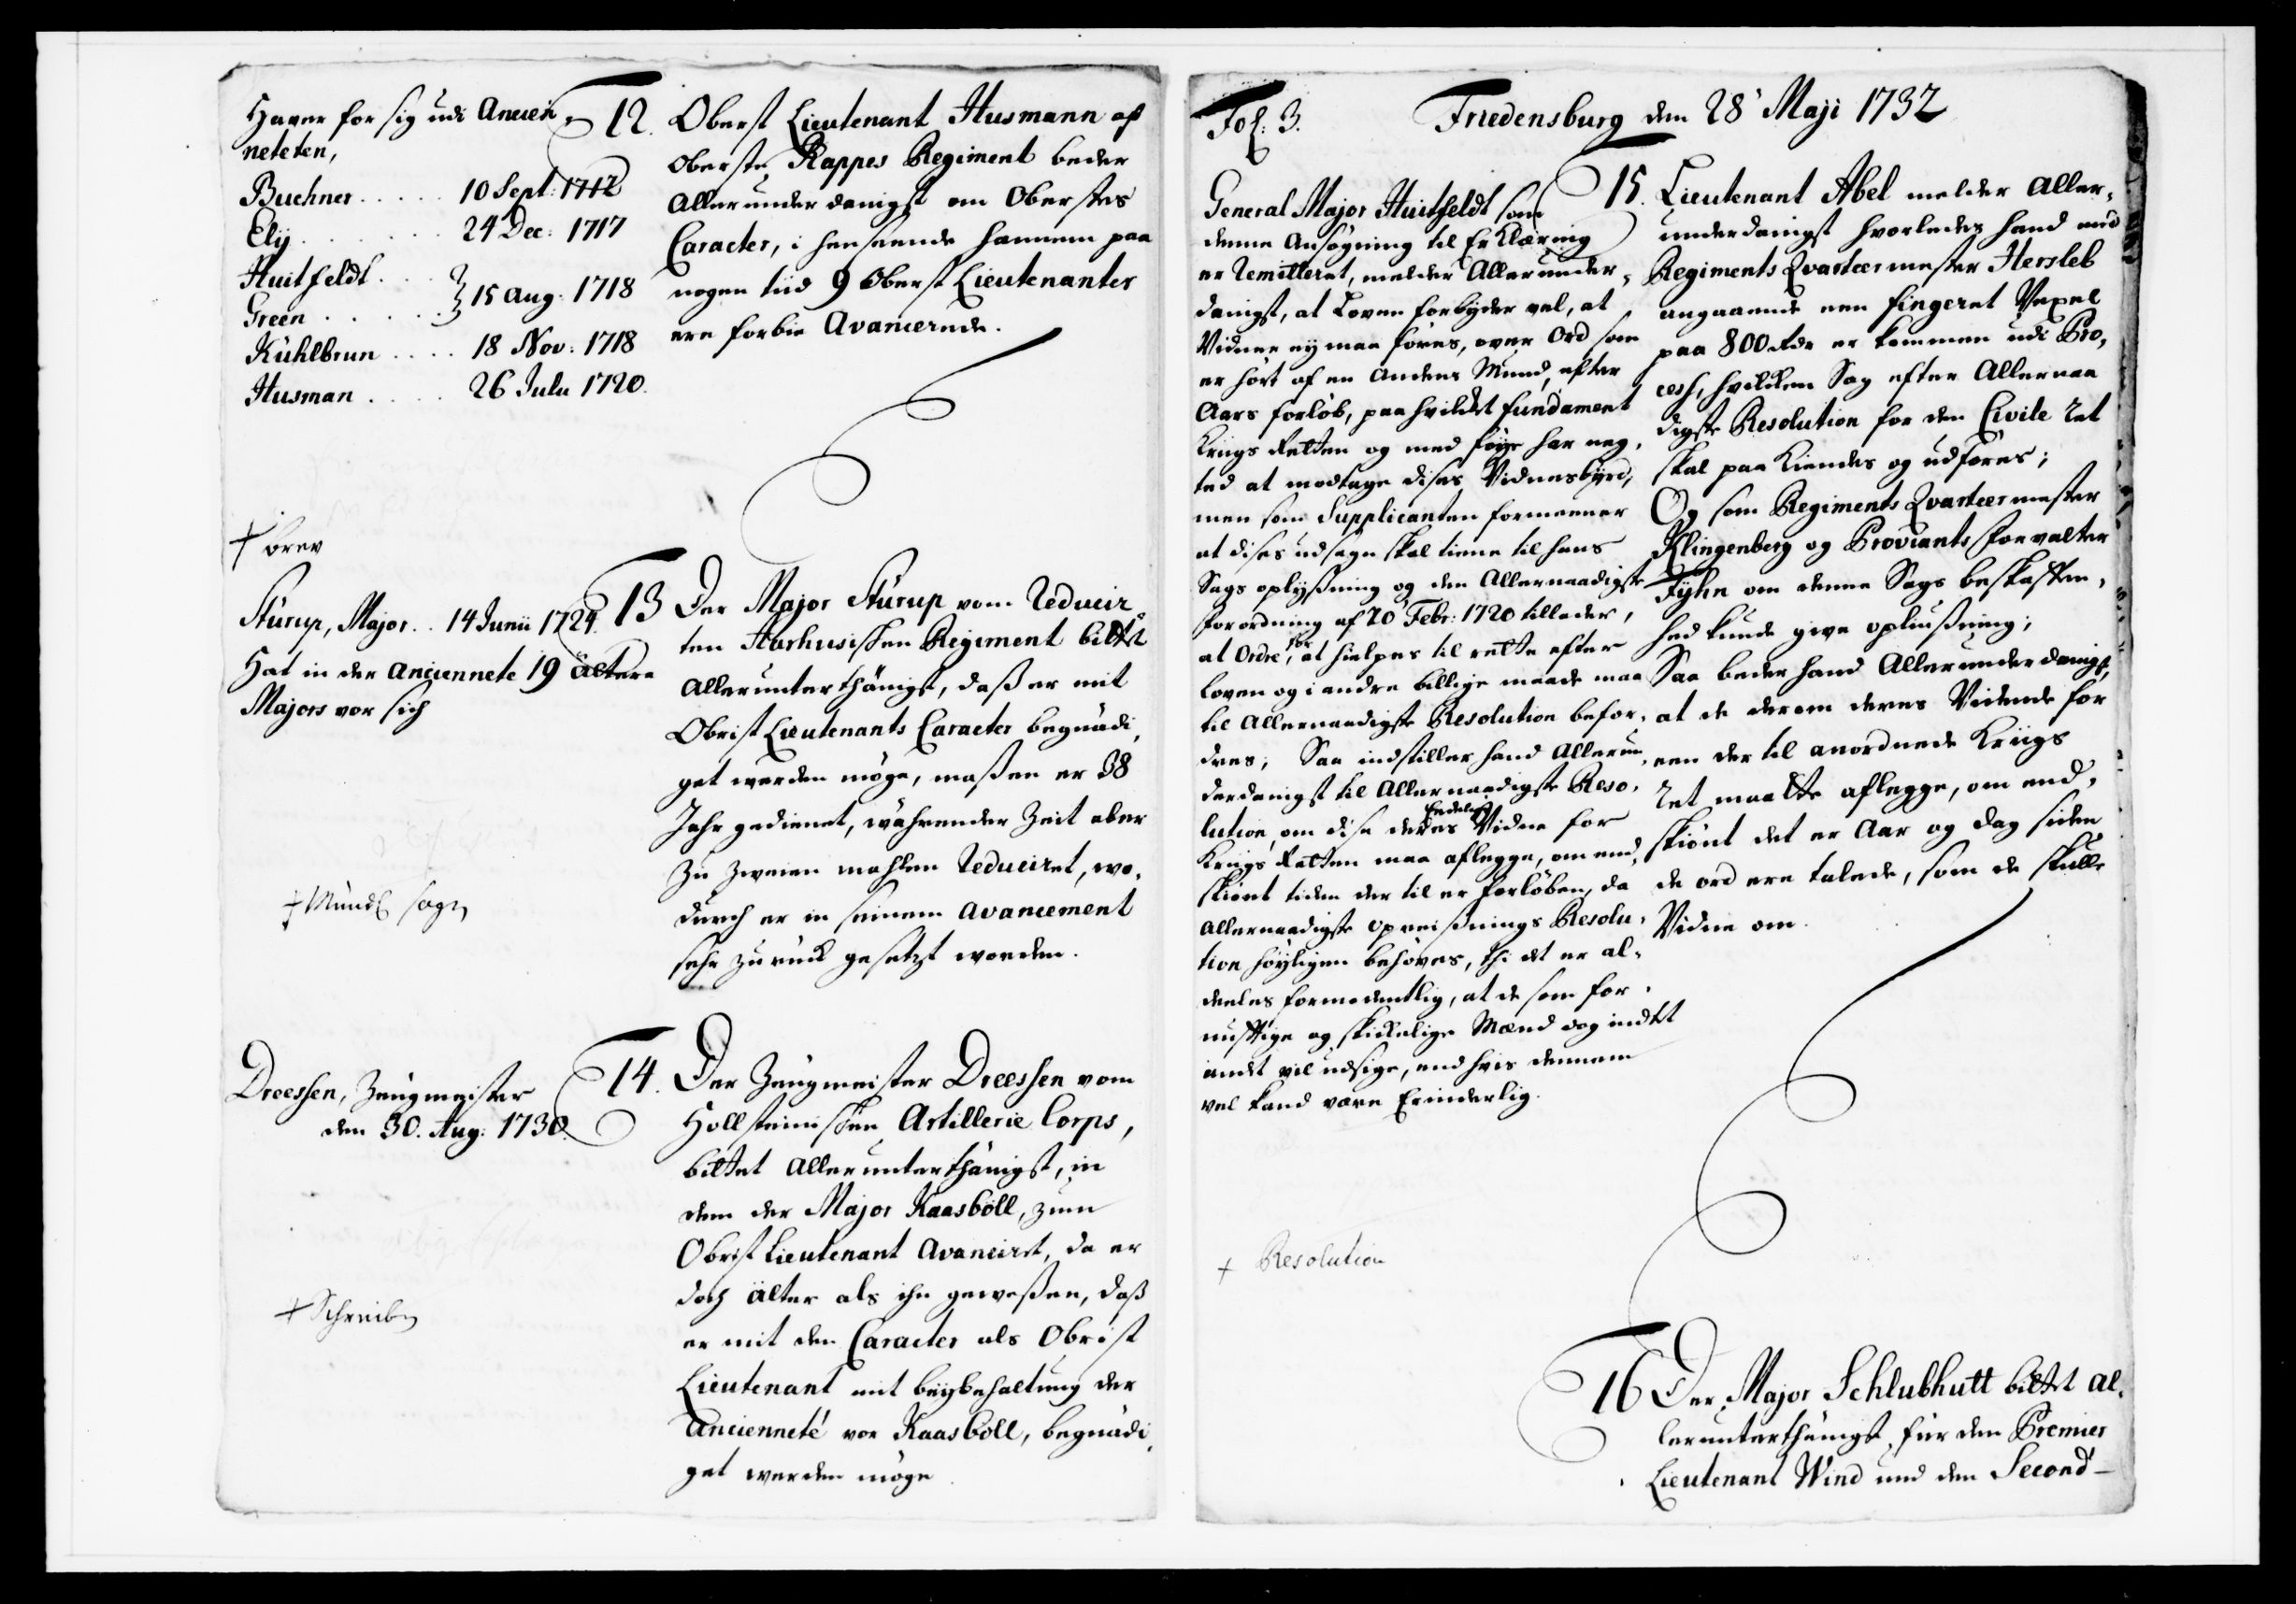 Haver for sig udi Ancien¬
neteten,
Buchner ..... 10 Sept: 1712
Ely ...... 24 Dec: 1717
Huitfeldt ...
Green ..... } 15 Aug: 1718
Kühlbrun .... 18 Nov: 1718
Husman .... 26 Julii 1720.
12. Oberst Lieutenant Husmann af
Oberste Kappes Regiment beder
Allerunderdanigst om Oberstes
Caracter, i henseende hannem paa
nogen tiid 9 Oberst Lieutenanter
ere forbie Avancerede.
+ brev
Sturup, Major .. 14 Junii 1724.
Hat in der Anciennete 19 ältere
Majors vor sich
13 Der Major Sturup vom Reducir
ten Aarhusischen Regiment bittet
Allerunterthänigst, daß er mit
Obrist Lieutenants Caracter begnädi¬
get werden möge, maßen er 38
Jahr gedienet, währender Zeit aber
zu zweien mahlen Reduciret, wo¬
durch er in seinem Avancement
sehr zurück gesetzt worden.
+ Mündl sagn
Dreessen, Zeugmeister
den 30. Aug: 1730.
14. Der Zeugmeister Dreessen vom
Hollsteinischen Artillerie Corps,
bittet Allerunterthänigst, in
dem der Major Kaasböll, zum
Obrist Lieutenant Avanciret, da er
doch älter als ihn geweßen, daß
er mit den Caracter als Obrist
Lieutenant mit beybehaltung der
Ancienneté vor Kaasböll, begnädi¬
get werden möge
+ Schreiben
Fol: 3. Friedensburg den 28' Maji 1732
General Major Huitfeldt som
denne Ansøgning til Erklæring
er Remitteret, melder Allerunder¬
danigst, at Loven forbyder vel, at
Vidner ey maa føres, over Ord som
er hørt af en Andens Mund, efter
Aars forløb, paa hvilket fundament
Kriigs Retten og med føye har neg¬
ted at modtage dises Vidnesbyrd,
men som Supplicanten formeener
at dises udsagn skal tiene til hans
Sags oplysning og den Allernaadigste
forordning af 20 Febr: 1720 tillader,
at Ordre, for at hielpes til rette efter
Loven og i andre billige maade maa
til Allernaadigste Resolution befor¬
dres; Saa indstiller hand Allerun
derdanigst til Allernaadigste Reso¬
lution, om dise deres Endelig Vidne for
Kriigs Retten maa aflegge, om end
skiønt tiden der til er forløben, da
Allernaadigste opreisnings Resolu¬
tion høyligen behøves, thi det er al¬
deeles formodentlig, at de som for¬
nuftige og skickelige Mænd dog indtet
andt vil udsige, end hvis dennem
vel kand være Erinderlig.
+ Resolution
15. Lieutenant Abel melder Aller¬
underdanigst hvorledes hand mod
Regiments Qvarteermester Hersleb
angaaende een fingeret Vexel
paa 800 Rdr er kommen udi Pro¬
cess, hvilken Sag efter Allernaa
digste Resolution for den Civile Ret
skal paa kiendes og udføres;
Og som Regiments Qvarteermester
Klingenberg og Proviants forvalter
Fyhn om denne Sags beskaffen¬
hed kunde give opliusning;
Saa beder hand Allerunderdanigst,
at de derom deres Vidende for
een der til anordnede Kriigs
Ret maatte aflegge, om end¬
skiønt det er Aar og dag siden
de ord ere talede, som de skulle
Vidne om.
16 Der Major Schlubhutt bittet al¬
lerunterthänigst, für den Premier
Lieutenant Wind und den Second-